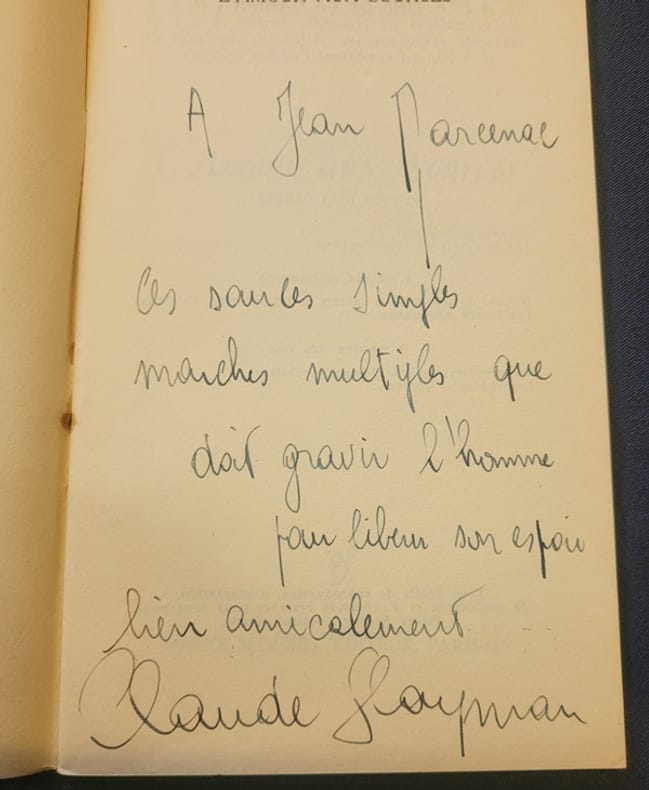 A Jean Marcenac
Ces sources simples
marches multiples que
doit gravir l'homme
pour libérer son espoir
bien amicalement
Claude Glayman